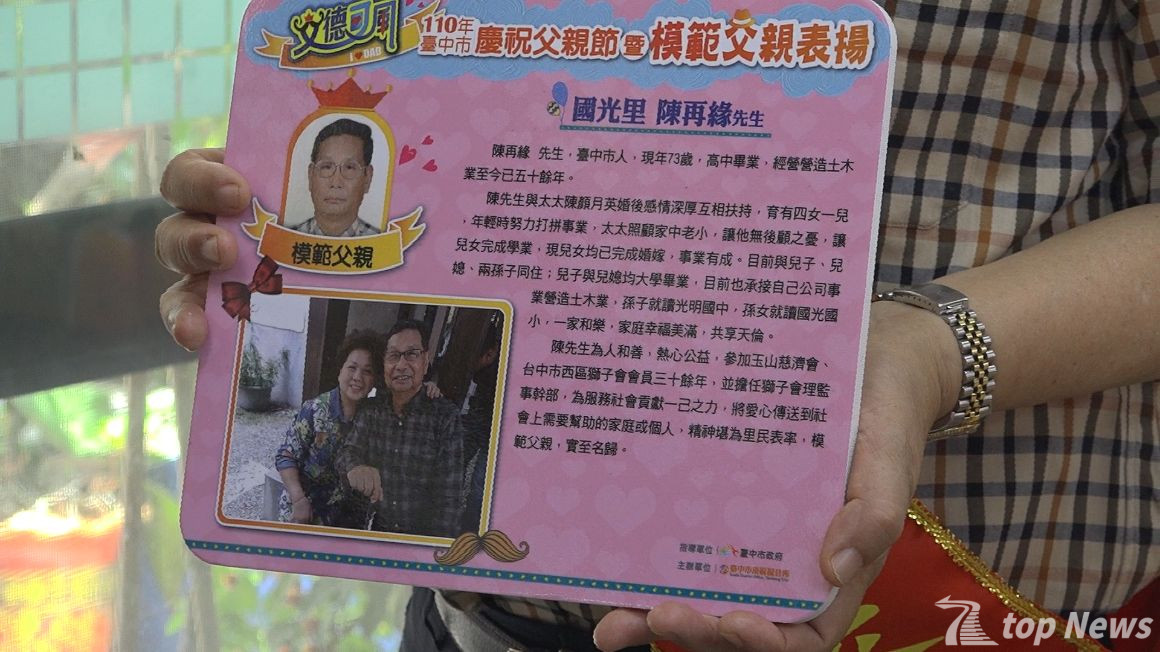 文德
I DAD
110年
臺中市
慶祝父親節暨模範父親表揚
國光里 陳再緣先生
陳再緣 先生，臺中市人，現年73歲，高中畢業，經營營造土木
業至今已五十餘年。
陳先生與太太陳顏月英婚後感情深厚互相扶持，育有四女一兒
，年輕時努力打拼事業，太太照顧家中老小，讓他無後顧之憂，讓
兒女完成學業，現兒女均已完成婚嫁，事業有成。目前與兒子、兒
媳、兩孫子同住；兒子與兒媳均大學畢業，目前也承接自己公司事
業營造土木業，孫子就讀光明國中，孫女就讀國光國
小，一家和樂，家庭幸福美滿，共享天倫。
陳先生為人和善，熱心公益，參加玉山慈濟會、
台中市西區獅子會會員三十餘年，並擔任獅子會理監
事幹部，為服務社會貢獻一己之力，將愛心傳送到社
會上需要幫助的家庭或個人，精神堪為里民表率，模
範父親，實至名歸。
模範父親
指導單位 臺中市政府
主辦單位 臺中市南區區公所
top News